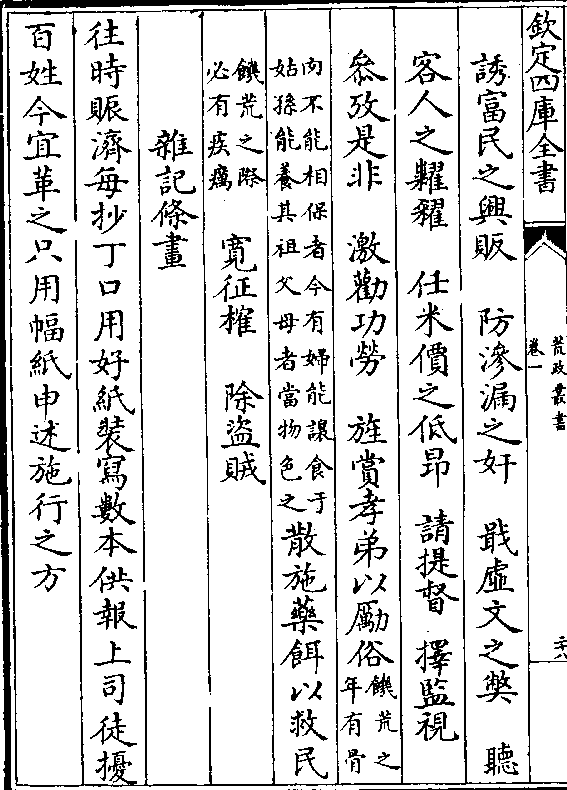 欽定四庫全書
荒政叢書
卷一
二十八
誘富民之興販　防滲漏之奸　戢虛文之弊　聽
客人之糶糴　任米價之低昂　請提督　擇監視
叅攷是非　激勸功勞　旌賞孝弟以勵俗饑荒之年有骨
肉不能相保者今有婦能讓食于姑孫能養其祖父母者當物色之散施藥餌以救民
饑荒之際必有疾癘　寛征榷　除盜賊
雜記條畫
往時賑濟每抄丁口用好紙裝寫數本供報上司徒擾
百姓今宜革之只用幅紙申述施行之方